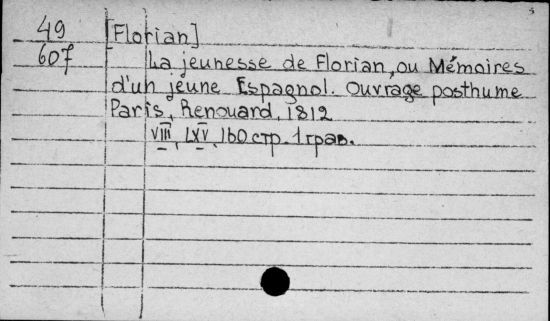 5
49 [Florian]
607 La jeunesse de Florian, ou Mémoires
d'un jeune Espagnol. Ouvrage posthume
Paris, Renouard, 1812
VIII, LXV, 160 стр. 1 грав.